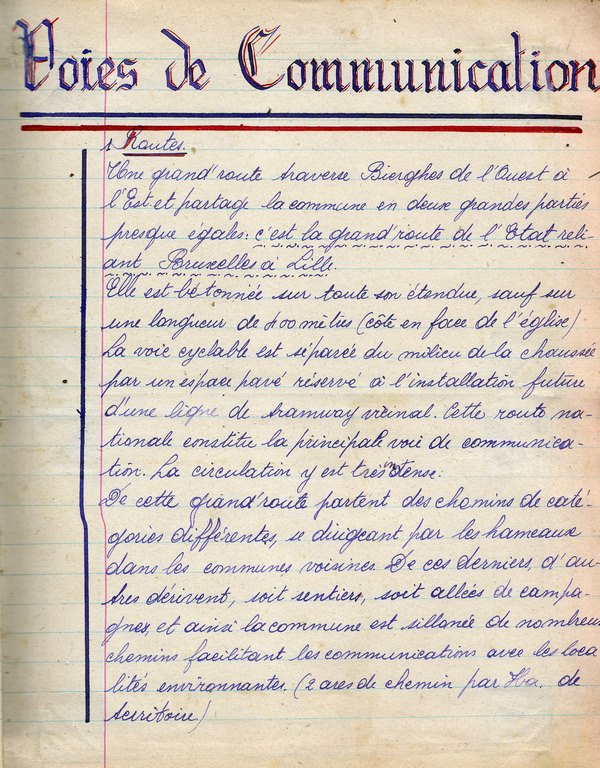 Voies de Communication
1 Routes.
Une grand'route traverse Bierghes de l'Ouest à
l'Est et partage la commune en deux grandes parties
presque égales: c'est la grand'route de l'Etat reli-
ant Bruxelles à Lille.
Elle est bétonnée sur toute son étendue, sauf sur
une longueur de 400 mètres (côte en face de l'église)
La voie cyclable est séparée du milieu de la chaussée
par un espace pavé réservé à l'installation future
d'une ligne de tramway vicinal. Cette route na-
tionale constitue la principale voie de communica-
tion. La circulation y est très intense.
De cette grand'route partent des chemins de caté-
gories différentes, se dirigeant par les hameaux
dans les communes voisines. De ces derniers, d'au-
tres dérivent, soit sentiers, soit allées de campa-
gnes, et ainsi la commune est sillonée de nombreux
chemins facilitant les communications avec les loca
lités environnantes. (2 ares de chemin par Ha. de
territoire)